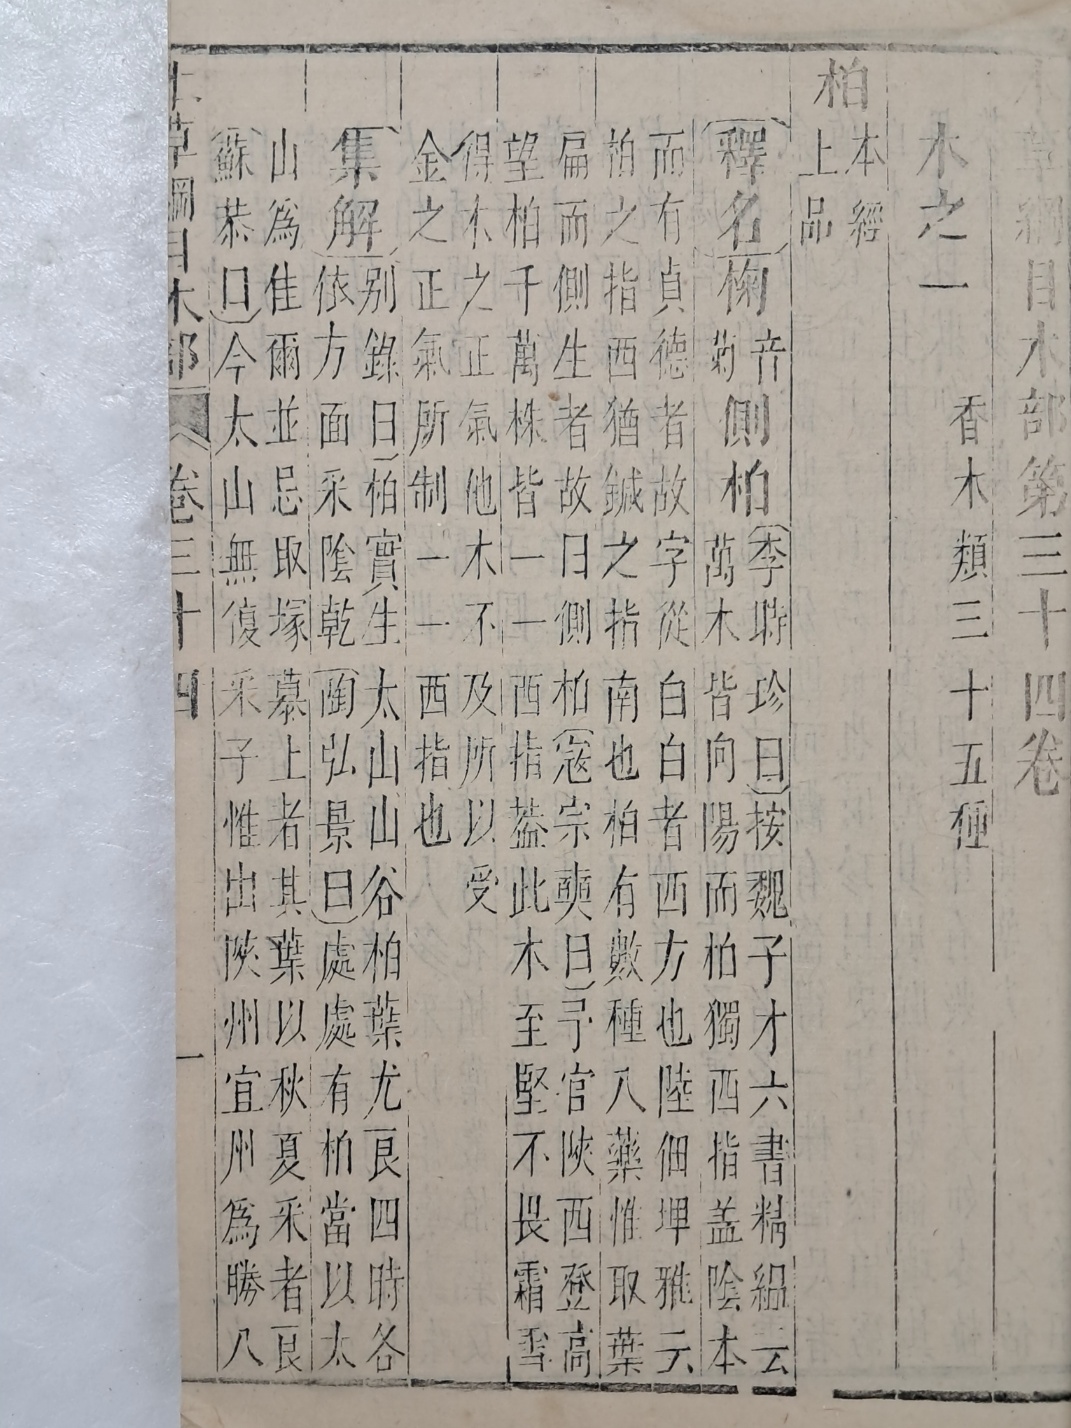 本草綱目木部第三十四卷
木之一
香木類三十五種
柏
本經
上品
釋名椈
音
菊
側柏
李時珍曰按魏子才六書精緼云
萬木皆向陽而柏獨西指盖陰木
而有貞德者故字從白白者西方也陸佃埤雅云
柏之指西猶鍼之指南也柏有數種入藥惟取葉
扁而側生者故曰側柏寇宗奭曰予官陝西登高
望柏千萬株皆一一西指葢此木至堅不畏霜雪
得木之正氣他木不及所以受
金之正氣所制一一西指也
集解
别錄曰柏實生太山山谷柏葉尤良四時各
依方面采陰乾陶弘景曰處處有柏當以太
山爲佳爾並忌取塚墓上者其葉以秋夏采者良
蘇恭曰今太山無復采子惟出陝州宜州爲勝八
本草綱目木部 卷三十四 一